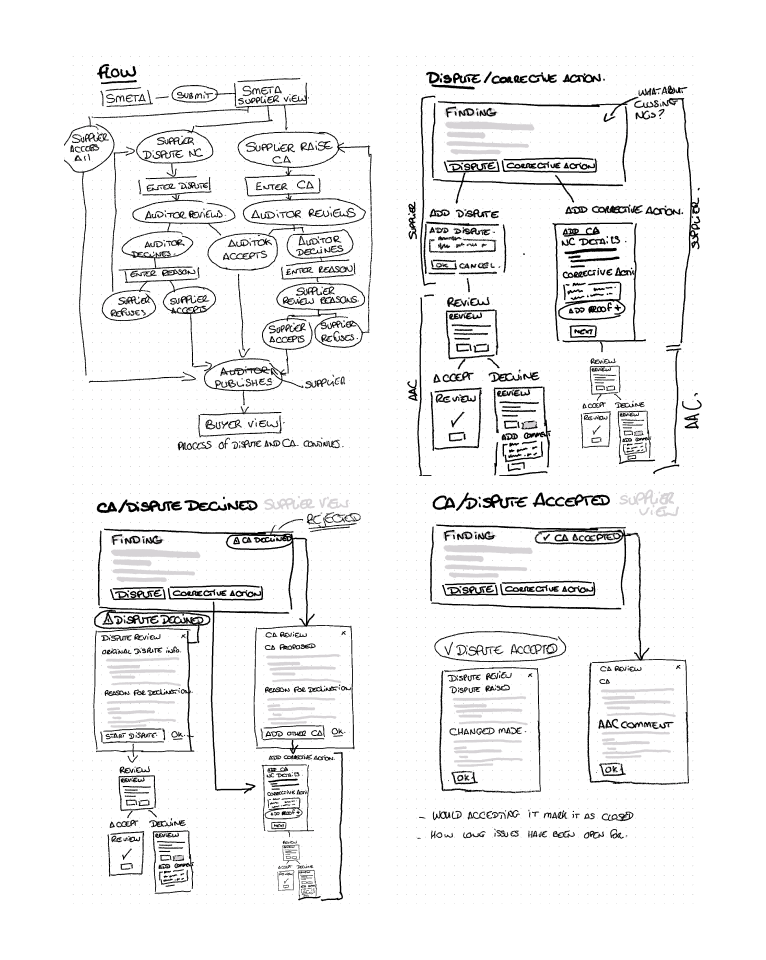 FLOW
SMETA
SUBMIT
SMETA
SUPPLIER VIEW.
SUPPLIER
ACCEPTS
All
SUPPLIER
DISPUTE NC
SUPPLIER RAISE
CA
ENTER DISPUTE
ENTER CA
AUDITOR REVIEWS.
AUDITOR REVIEWS
AUDITOR
DECLINES.
AUDITOR
ACCEPTS
AUDITOR
DECLINES
ENTER REASON
ENTER REASON
SUPPLIER
REFUSES
SUPPLIER
ACCEPTS
SUPPLIER
REVIEW REASONS.
SUPPLIER
ACCEPTS
SUPPLIER
REFUSES.
AUDITOR
PUBLISHES
SUPPLIER
BUYER VIEW
PROCESS OF DISPUTE AND CA CONTINUES.
DISPUTE/CORRECTIVE ACTION.
WHAT ABOUT
CLOSING
NCS?
FINDING
DISPUTE
CORRECTIVE ACTION
SUPPLIER
SUPPLIER.
ADD DISPUTE
ADD DISPUTE.
OK
CANCEL.
ADD CORRECTIVE ACTION.
ADD CA
NC DETAILS.
CORRECTIVE ACTI
ADD PROOF +
NEXT
REVIEW
REVIEW
ACCEPT
DECLINE
REVIEW
REVIEW
ADD COMMENT
AAC
REVIEW
REVIEW
ACCEPT
DECLINE
REVIEW
REVIEW
ADD COMMENT
AAC.
CA/DISPUTE DECLINED SUPPLIER VIEW
REJECTED
FINDING
CA DECLINED
DISPUTE
CORRECTIVE ACTION
DISPUTE DECLINED
DISPUTE REVIEW x
ORIGINAL DISPUTE INFO.
REASON FOR DECLINATION
START DISPUTE
OK.
REVIEW
REVIEW
ACCEPT
DECLINE
REVIEW
REVIEW
ADD COMMENT
CA REVIEW x
CA PROPOSED
REASON FOR DECLINATION
ADD OTHER CA
OK.
ADD CORRECTIVE ACTION.
ADD CA
NC DETAILS
CORRECTIVE ACTI
ADD PROOF +
NEXT
REVIEW
ACCEPT
DECLINE
CA/DISPUTE ACCEPTED SUPPLIER
VIEW
FINDING
✓ CA ACCEPTED
DISPUTE
CORRECTIVE ACTION
✓ DISPUTE ACCEPTED
DISPUTE REVIEW x
DISPUTE RAISED
CHANGED MADE.
OK
CA REVIEW x
CA
AAC COMMENT
OK
- WOULD ACCEPTING IT MARK IT AS CLOSED
- HOW LONG ISSUES HAVE BEEN OPEN FOR.